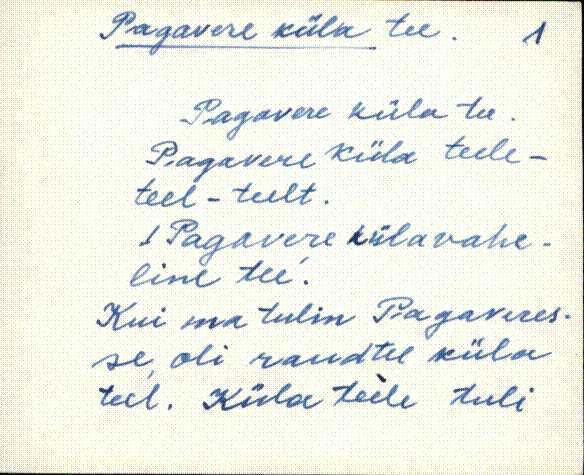 Pagavere küla tee. 1
Pagavere küla tee.
Pagavere küla teele-
teel - teelt.
/ Pagavere külavahe-
line tee.
Kui ma tulin Pagaveres-
se, oli raudtee küla
teel. Küla teele tuli